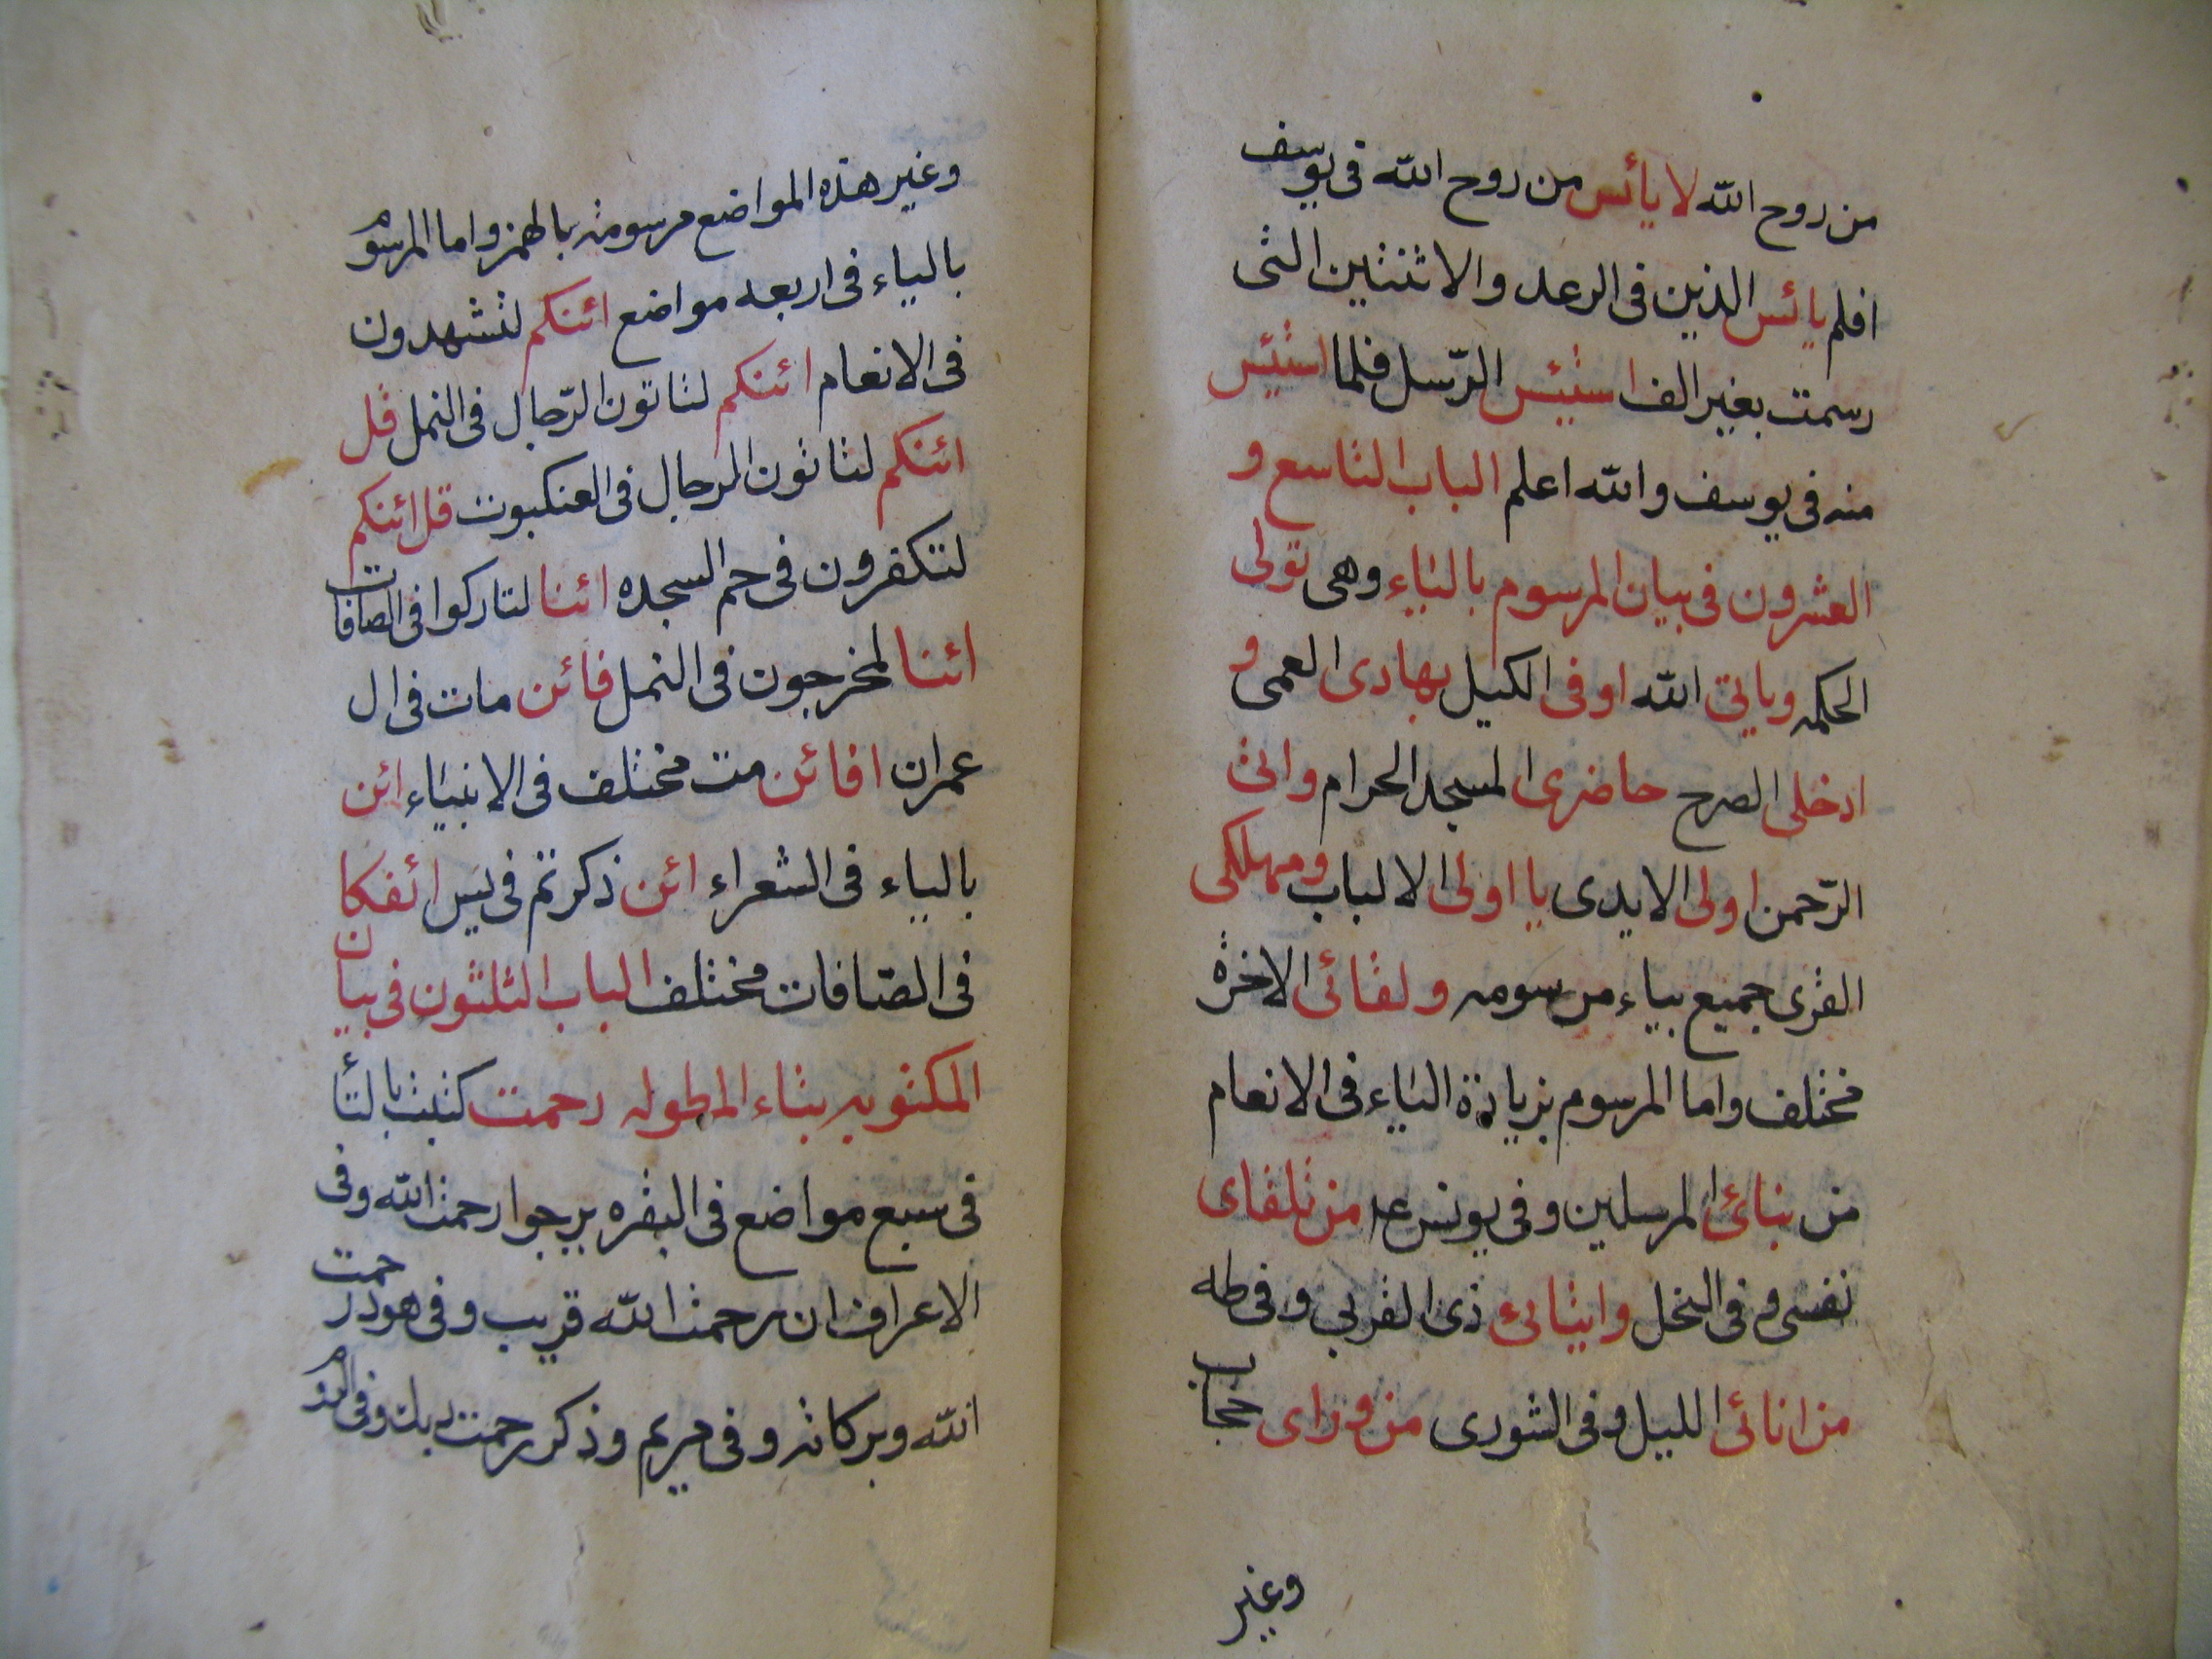 من روح الله لا يائس من روح الله فى يوسف
افلم يائس الذين فى الرعد والاثنتين التى
رسمت بغير الف استيئس الرّسل فلما استيئس
منه فى يوسف والله اعلم الباب التاسع و
العشرون فى بيان المرسوم بالياء وهى توتى
الحكمه وياتى الله اوفى الكيل بهادى العمى و
ادخلى الصرح حاضرى المسجد الحرام واتى
الرّحمن اولى الايدى يا اولى الالباب ومهلكى
القرى جميع بياء مرسومه ولقائى الاخرة
مختلف واما المرسوم بزيادة الياء فى الانعام
من نبائ المرسلين وفى يونس عم من تلقاى
نفسى و فى النحل وايتائ ذى القربى وفى طه
من انائى الليل وفى الشورى من وراى حجاب
وغير
وغير هذه المواضع مرسومة بالهمز واما المرسوم
بالياء فى اربعه مواضع ائنكم لتشهدون
فى الانعام ائنكم لتاتون الرّجال فى النمل قل
ائنكم لتاتون الرجال فى العنكبوت قل ائنكم
لتكفرون فى حم السجده ائنا لتاركوا فى الصافات
ائنا لمخرجون فى النمل فائن مات فى ال
عمران افائن مت مختلف فى الانبياء ائن
بالياء فى الشعراء ائن ذكرتم فى يس ائفكا
فى الصّافات مختلف الباب الثلثون فى بيان
المكتوبه بتاء المطوله رحمت كتبت بالتأ
فى سبع مواضع فى البقره يرجوا رحمت الله وفى
الاعراف ان رحمت الله قريب وفى هود رحمت
الله وبركاته وفى مريم وذكر رحمت ربك وفى الروم